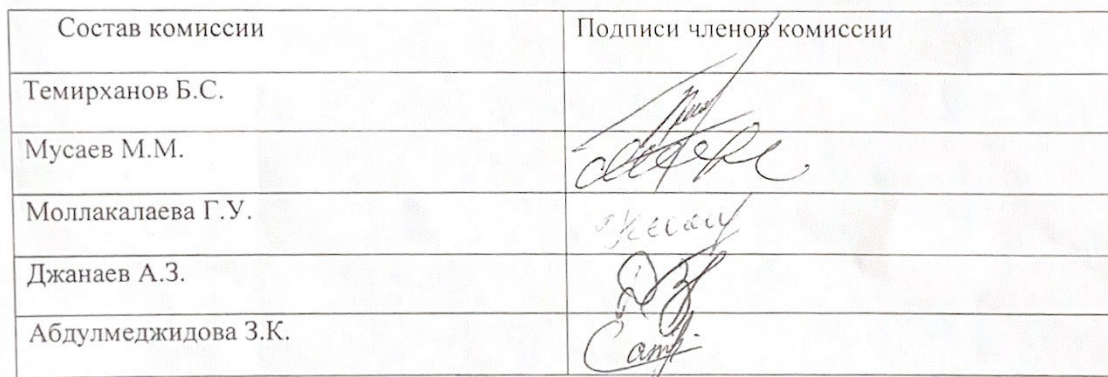 Состав комиссии Подписи членов комиссии
Темирханов Б.С.
Мусаев М.М.
Моллакалаева Г.У.
Джанаев А.З.
Абдулмеджидова З.К.